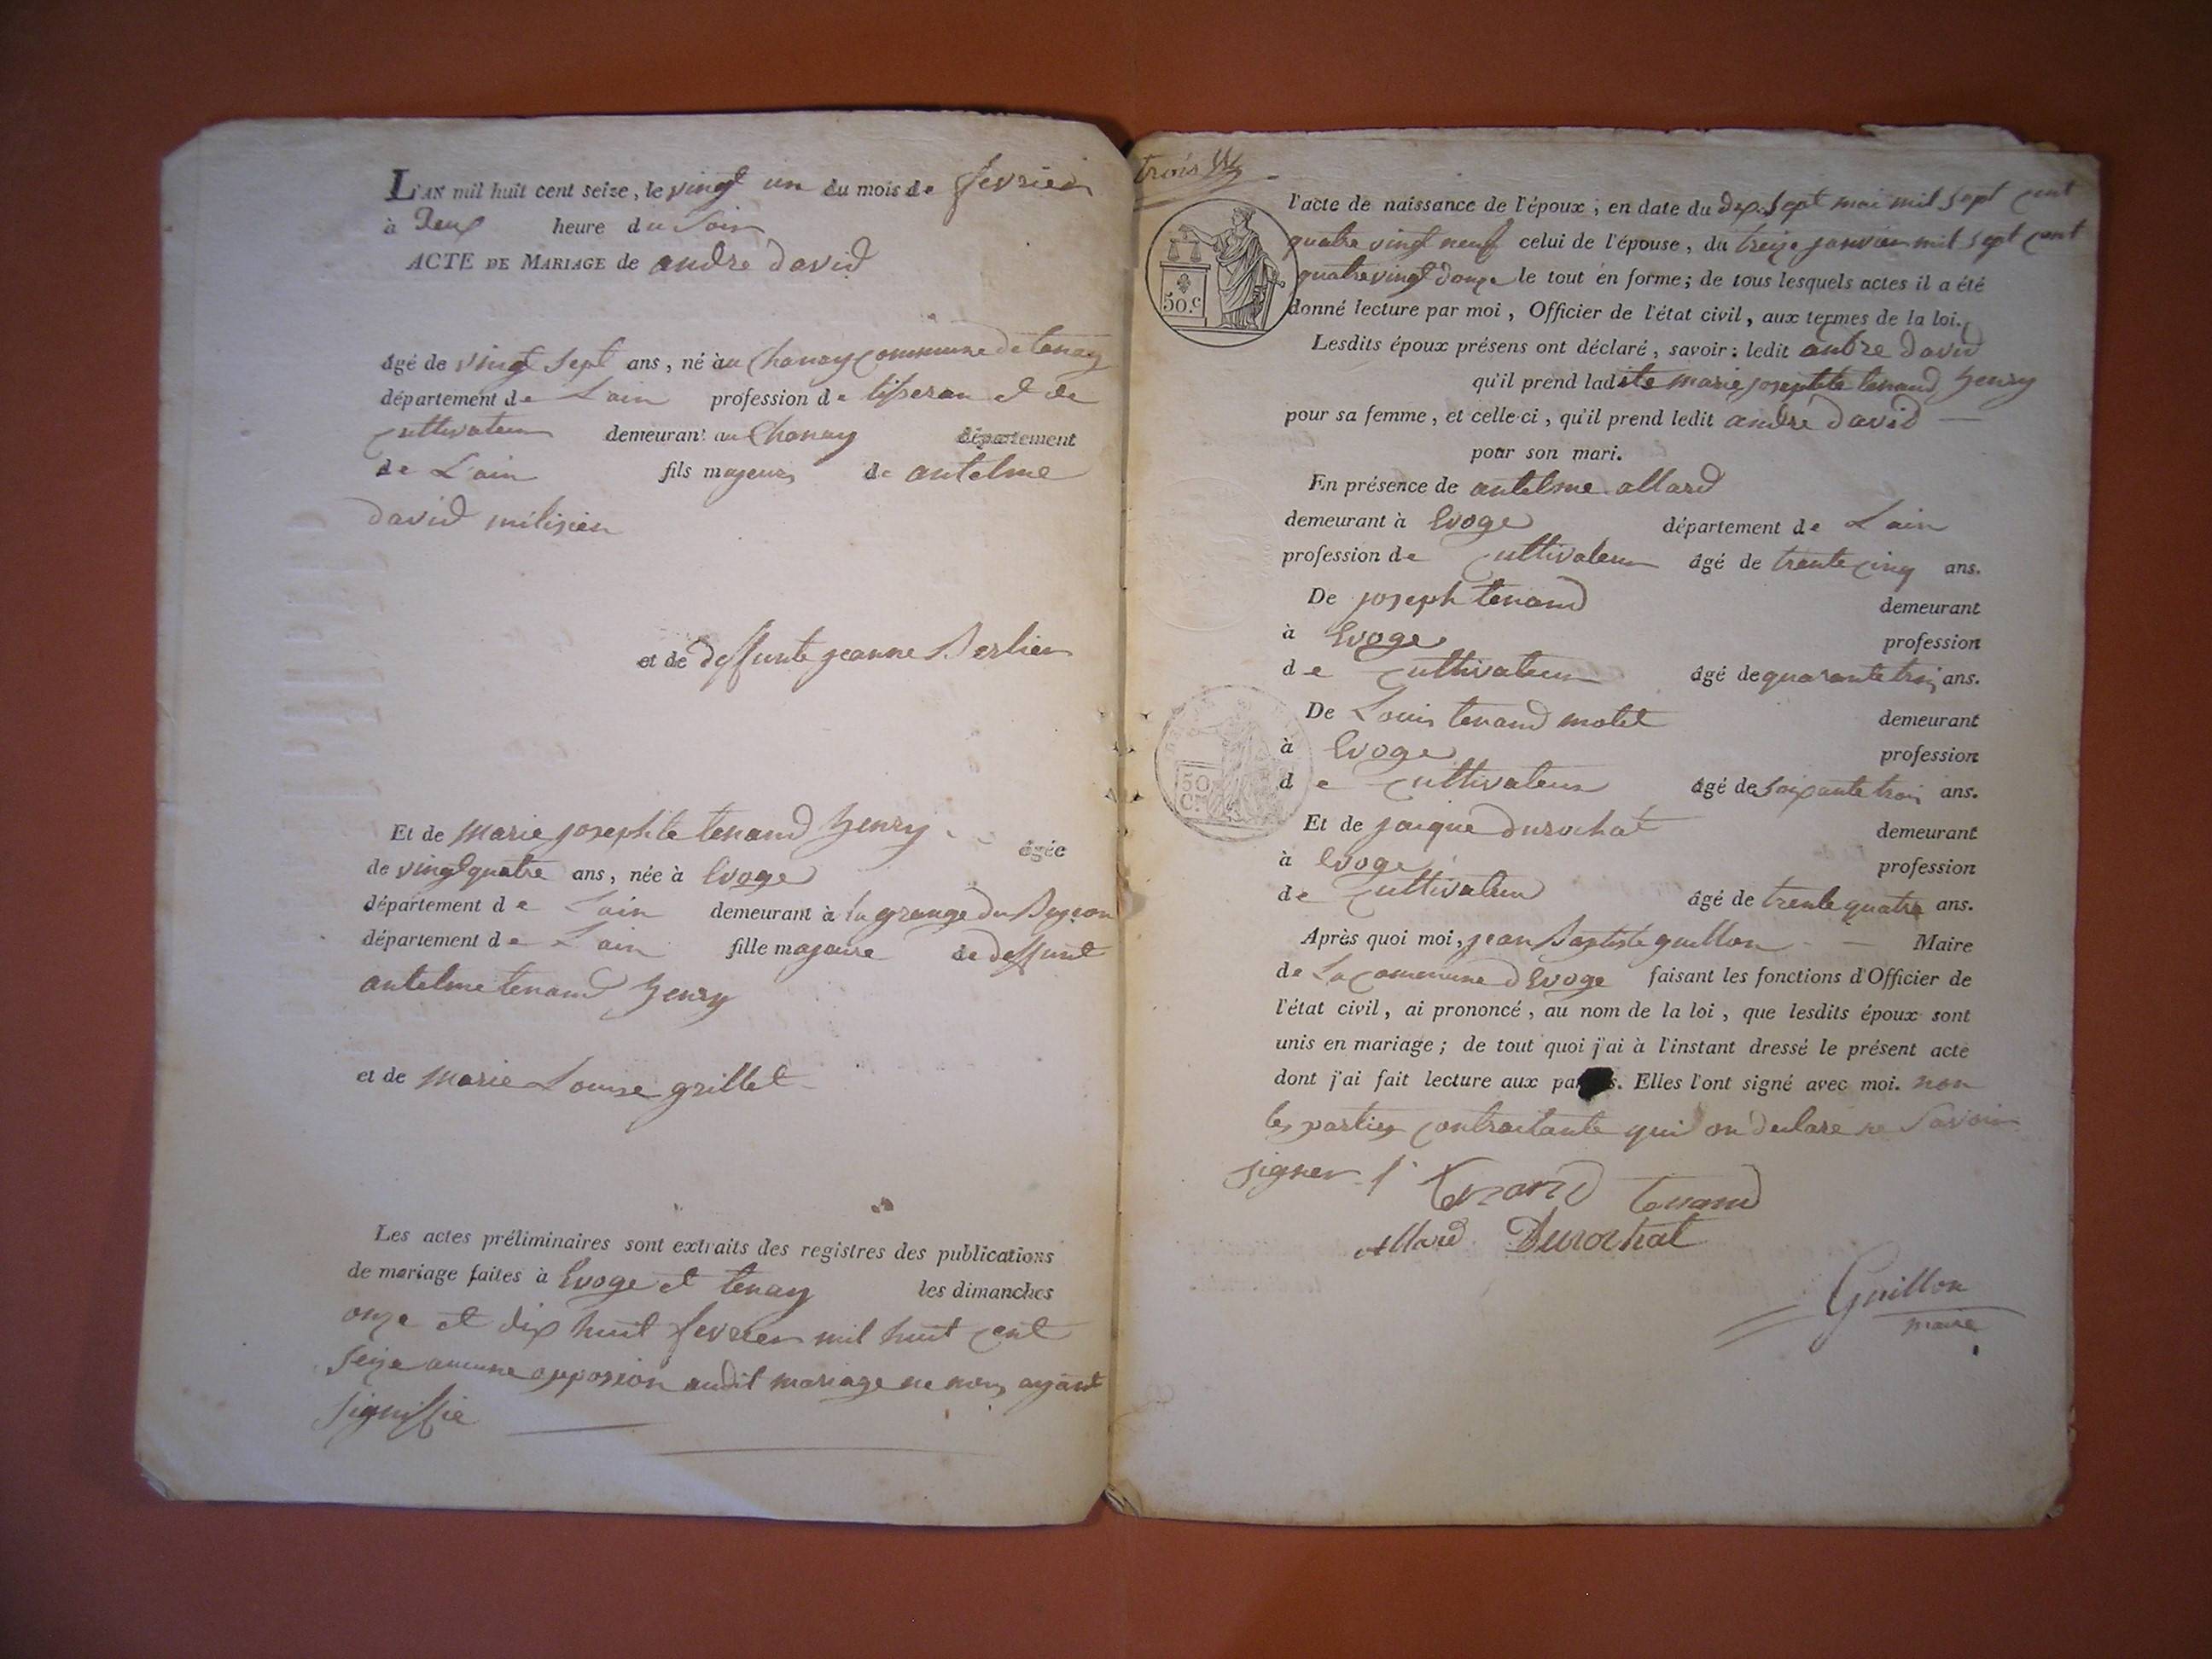 L'AN mil huit cent seize, le vingt un du mois de fevrier
à Deux heure du Soir
ACTE DE MARIAGE de andre david
âgé de vingt sept ans, né au Chanay Commune de tenay
département de Lain profession de tisseran et de
Cultivateur demeurant au Chanay département
de Lain fils majeur de antelme
david milisien
et de deffunte jeanne Berlier
Et de marie josephte tenand henry âgée
de vingt quatre ans, née à Evoge
département de Lain demeurant à la grange du
département de Lain fille majeure de deffunt
antelme tenand henry
et de marie Louise grillet
Les actes préliminaires sont extraits des registres des publications
de mariage faites à Evoge et tenay les dimanches
onze et dix huit fevrier mil huit cent
seize aucune opposion audit mariage ne nous ayant
signiffie
trois
50.c
l'acte de naissance de l'époux, en date du dix sept mai mil sept cent
quatre vingt neuf celui de l'épouse, du treize janvier mil sept cent
quatre vingt douze le tout en forme; de tous lesquels actes il a été
donné lecture par moi, Officier de l'état civil, aux termes de la loi.
Lesdits époux présens ont déclaré, savoir: ledit andre david
qu'il prend ladite marie josephte tenand henry
pour sa femme, et celle-ci, qu'il prend ledit andre david
pour son mari.
En présence de antelme allard
demeurant à Evoge département de Lain
profession de Cultivateur âgé de trente cinq ans.
De joseph tenand demeurant
à Evoge profession
de Cultivateur âgé de quarante trois ans.
De Louis tenand molet demeurant
à Evoge profession
50
de Cultivateur âgé de soixante trois ans.
Et de jacque durochat demeurant
à Evoge profession
de Cultivateur âgé de trente quatre ans.
Après quoi moi, jean Baptiste guillon Maire
de La Commune d'Evoge faisant les fonctions d'Officier de
l'état civil, ai prononcé, au nom de la loi, que lesdits époux sont
unis en mariage; de tout quoi j'ai à l'instant dressé le présent acte
dont j'ai fait lecture aux pa s. Elles l'ont signé avec moi. non
les parties contractante qui on declare ne savoir
signer
Tenand tenand
allard Durochat
Guillon
maire